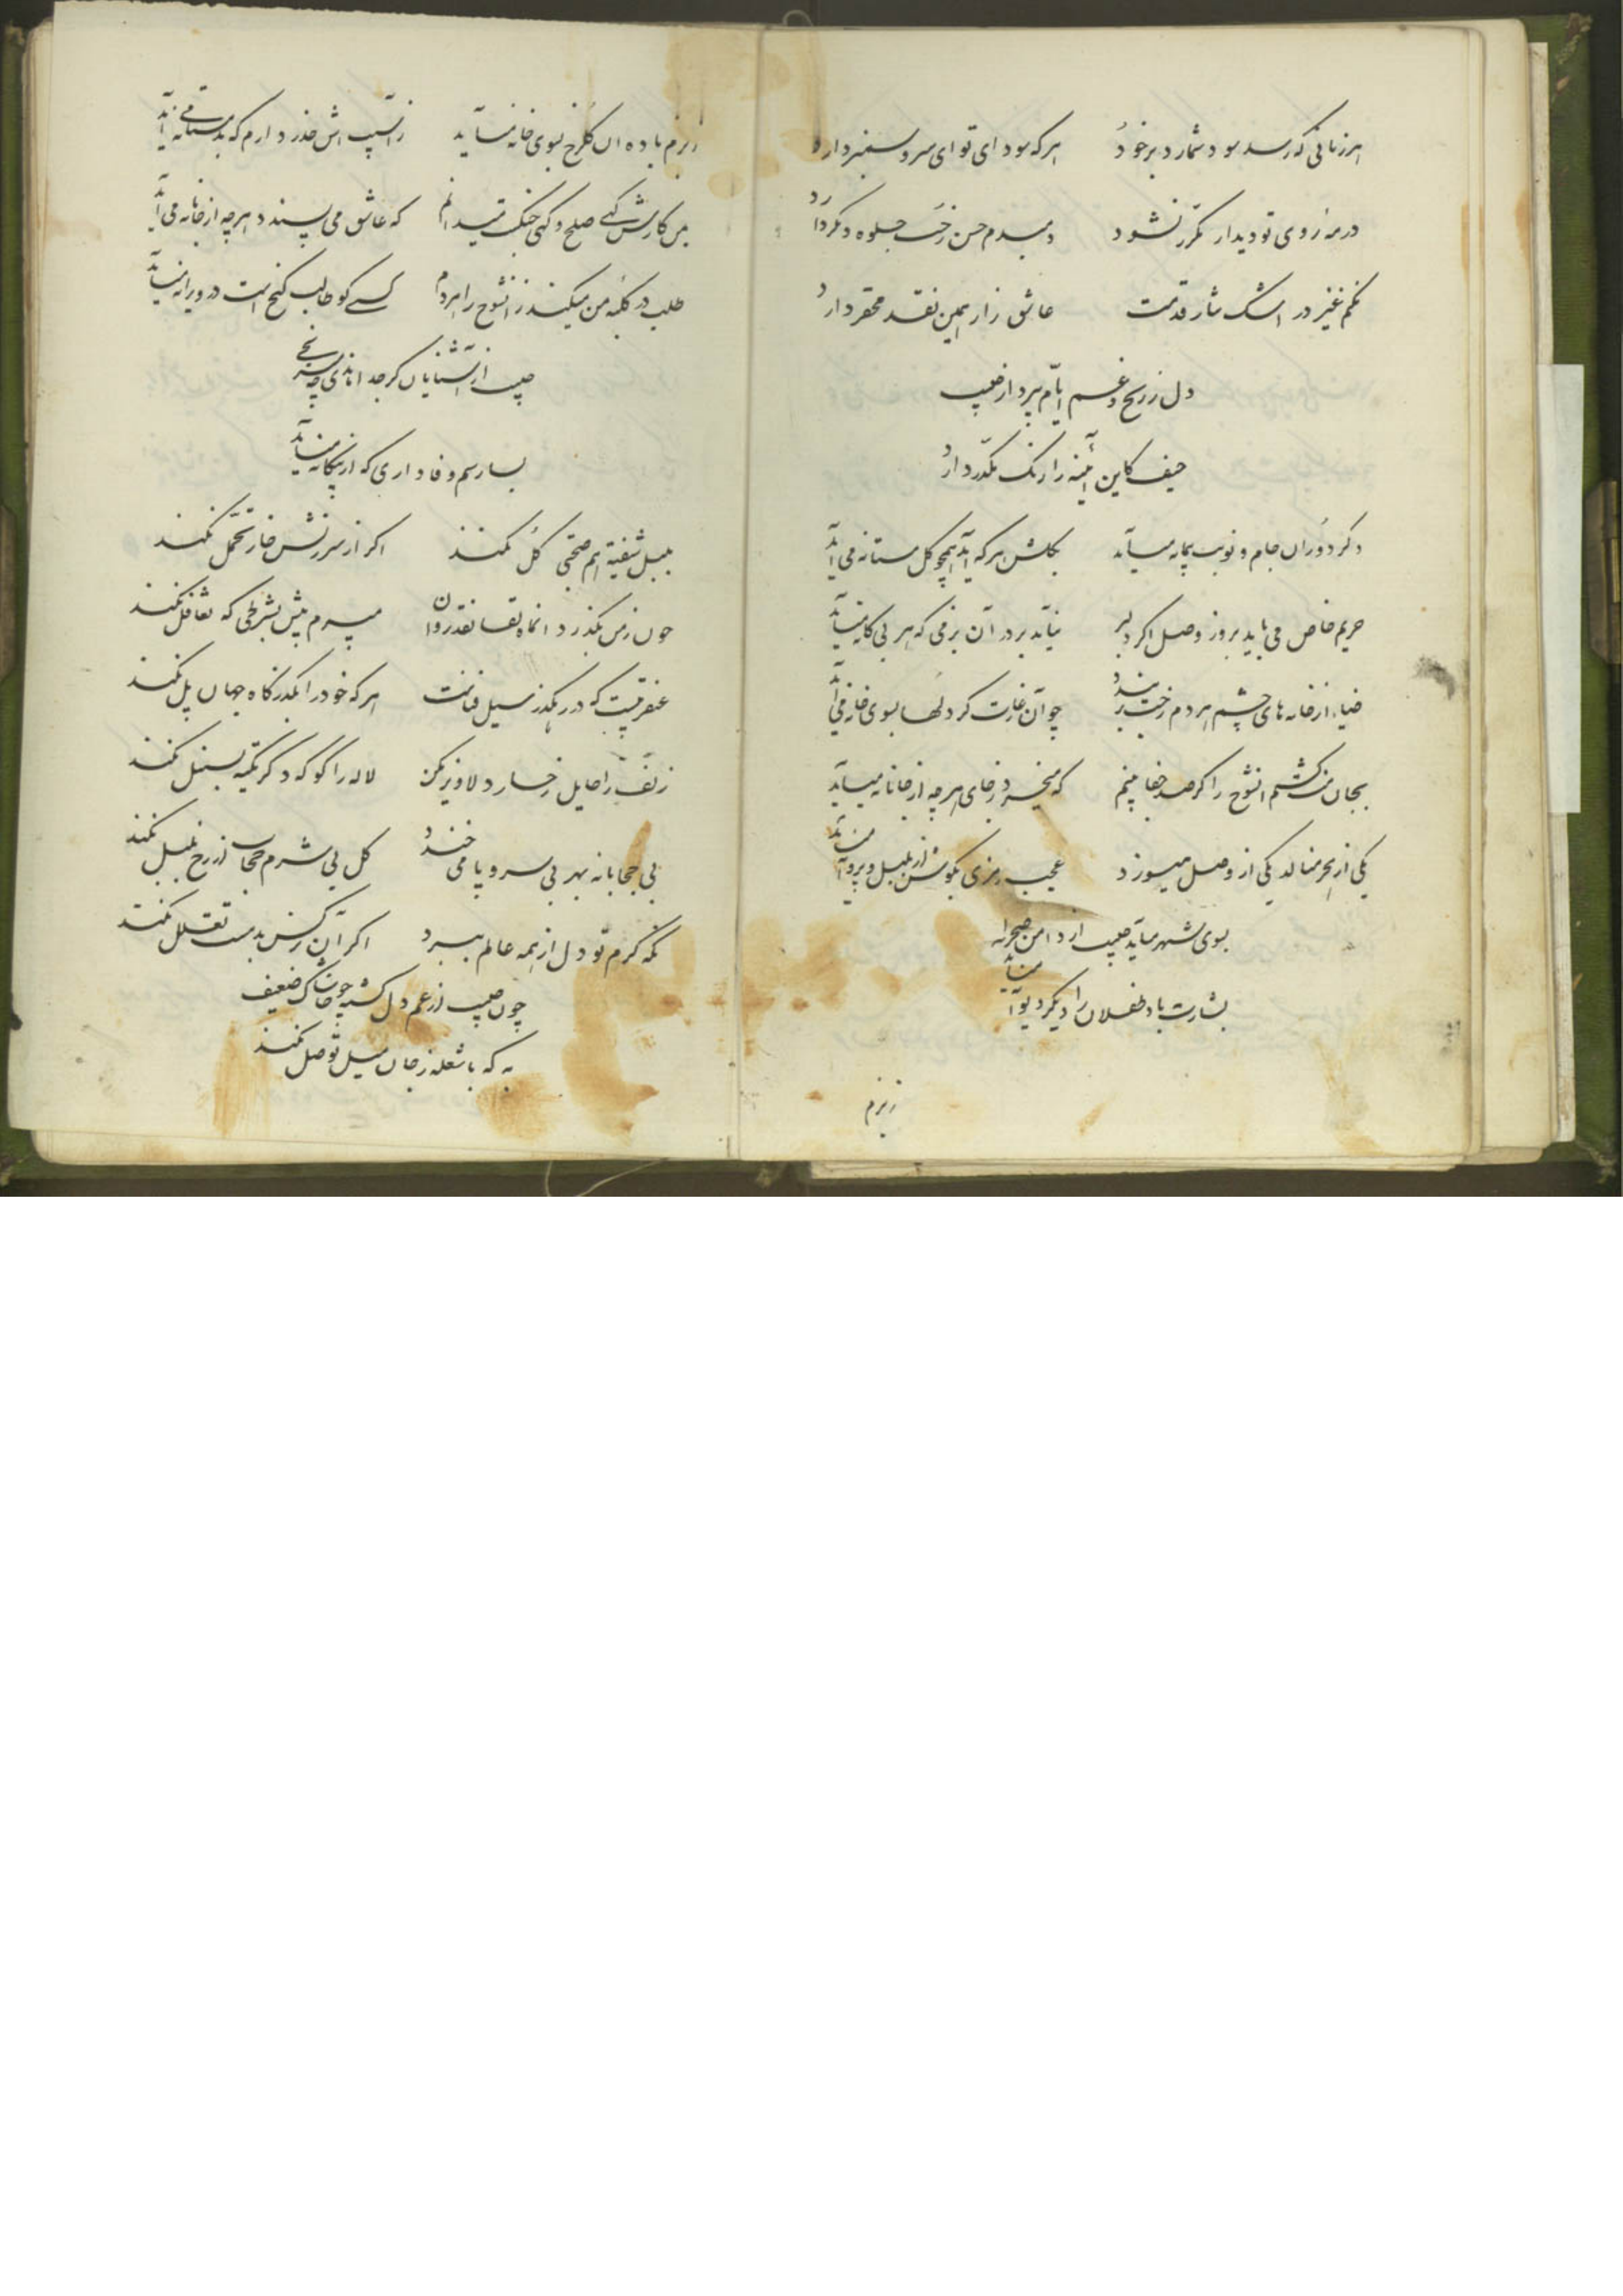 هر زمانی که رسد سود شمارد بر خود
هر که سودای تو ای سرو سمنبر دارد
در مه روی تو دیدار مکرر نشود
دمبدم حسن رخت جلوه دکر دارد
نکنم غیر در اشک نثار قدمت
عاشق زار همین نقد محقر دارد
دل ز رنج و غم ایام بپرداز
حیف کاین آئینه را زنک مکدر دارد
دکر دوران جام و نوبت پیمانه میآید
بکلشن هر که آید همچو کل مستانه می آید
حریم خاص می باید بروز وصل اکر دلبر
نیاید بر در آن بزمی که هر بیکانه میآید
ضیاء از خانه های چشم مردم رخت بر بندد
چو آن غارت کر دلها بسوی خانه می آید
بجان منت کشم آنشوخ را کر صد جفا بینم
که میخیزد رجای هر چه از جانانه میآید
یکی از هجر مینالد یکی از وصل میسوزد
عجب رمزی بکوشش از بلبل و پروانه میآید
بسوی شهر میآید از دامن صحرا
بشارت باد طفلان را دیکر دیوانه میآید
ز بزم
ز بزم باده آن کلرخ بسوی خانه میآید
ز آسیب اش حذر دارم که بد مستانه می آید
بمن کارش کهی صلح و کهی جنک نمیدانم
که عاشق می پسندد هر چه از جانانه می آید
طلب در کلبه من میکنند آنشوخ را مردم
کسی کو طالب کنج است در ویرانه میآید
از آشنایان کر جدا ماندی چه میرنجی
بسا رسم وفاداری که از بیکانه میآید
بلبل شیفته هم صحبتی کل نکند
اکر از سرزنش خار تحمل نکند
چون ز من بکذرد آنماه نقدروان
میبرم پیش بشرطی که تغافل نکند
عنقریبست که در رهکذر سیل فناست
هر که خود را بکذرکاه جهان پل نکند
زلف را حایل رخسار دلاویز مکن
لاله را کو که دکر تکیه بسنبل نکند
بی حجابانه بهر بی سر و پا می خندد
کل بی شرم حجاب از رخ بلبل نکند
نکه کرم تو دل از همه عالم ببرد
اکر آن نرکس بدمست تعلل نکند
چون از غم دل کشته چو خاشاک ضعیف
به که با شعله ز جان میل توصل نکند